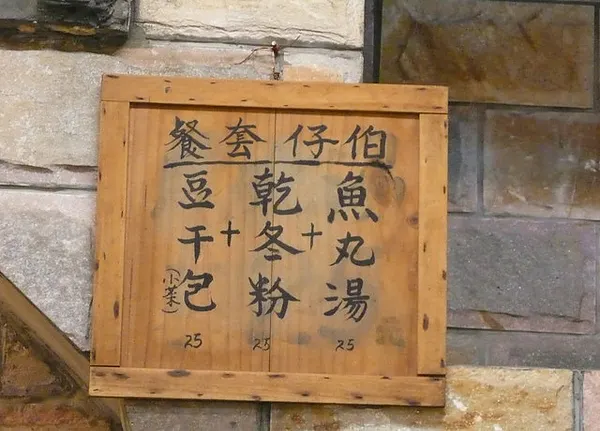 伯仔套餐
魚丸湯
25
+
乾冬粉
25
+
豆干包
(小菜)
25